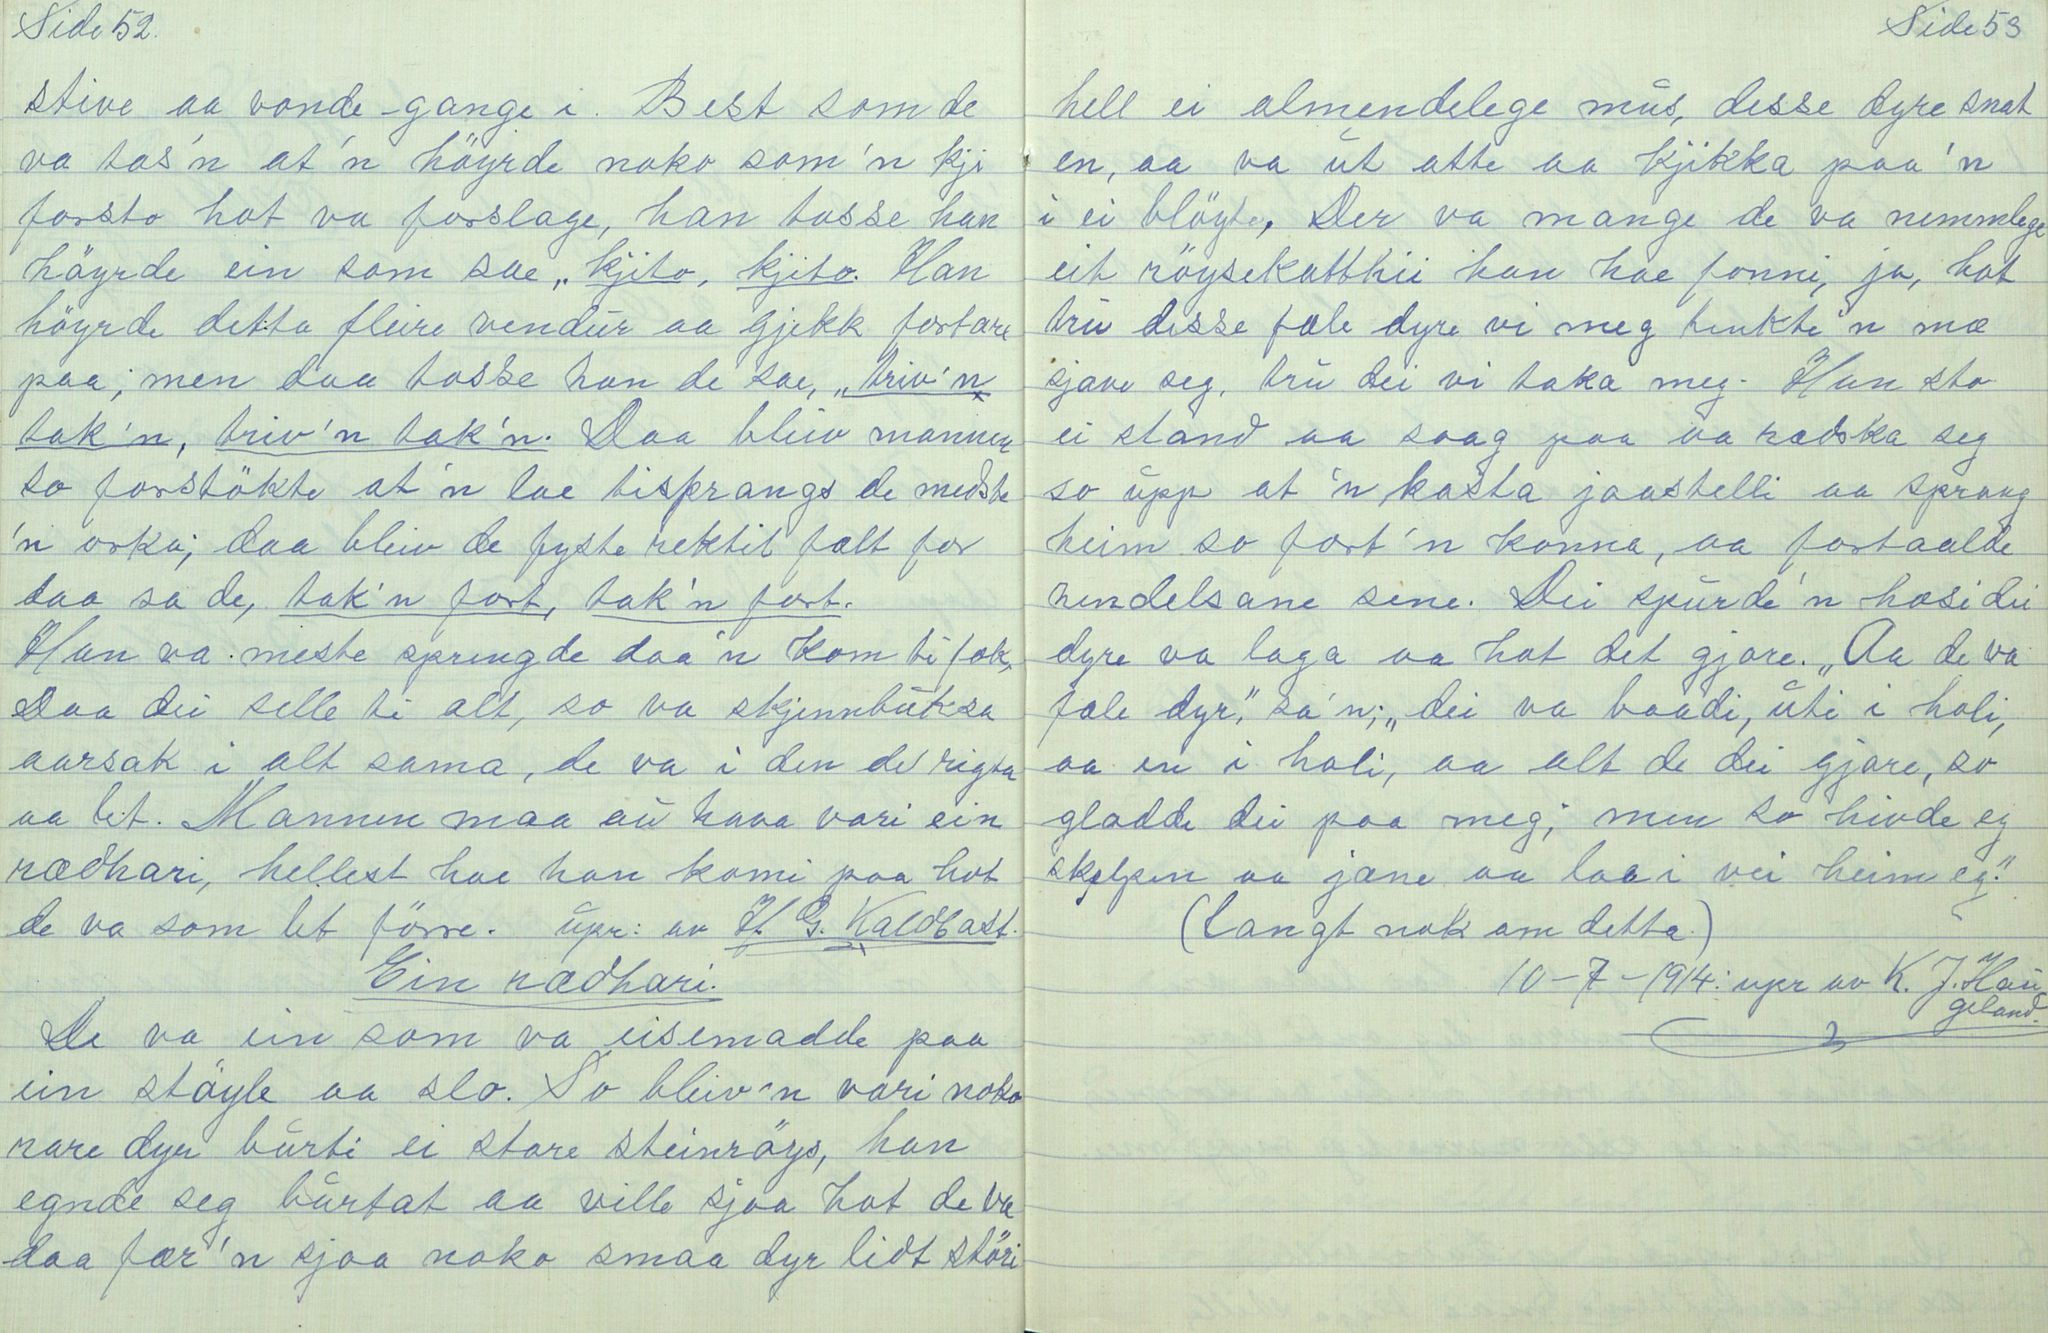 Side 52.
stive aa vonde gange i. Best som de
va tos'n at'n höyrde noko som'n kji
forsto hot va forslage, han tosse han
höyrde ein som sae „kjito, kjito. Han
höyrde detta fleire vendur aa gjekk fortare
paa; men daa tosse han de sae, „triv'n
tak'n, triv'n tak'n. Daa bleiv mannen
so forstökte at'n lae tisprangs de mestste
'n orka; daa bleiv de fyste rektit fælt for
daa sa de, tak'n fort, tak'n fort.
Han va meste sprengde daa'n kom ti fok,
Daa dei selle ti alt, so va skjennbûksa
aarsak i alt sama, de va i den de rigta
aa let. Mannen maa aû hava vari ein
rædhari, hellest hae han komi paa hot
de va som let förre. ûpr: av H. G. Kaldbast.
Ein rædhari.
De va ein som va eisemadde paa
ein stöyle aa slo. So bleiv'n vari noko
rare dyr bûrti ei store steinröys, han
egnde seg bûrtat aa ville sjaa hot de va
daa fær'n sjaa noko smaa dyr lidt störi
Side 53
hell ei almendelege mûs, desse dyre snat
en, aa va ût atte aa kjikka paa'n
i ei blöyte, Der va mange de va nemmlege
eit röysekatthii han hae fonni, ja, hot
trû desse fæle dyre vi meg tenkte'n mæ
sjave seg, trû dei vi taka meg. Han sto
ei stand aa saag paa aa rædska seg
so ûpp at'n kasta jaastelli aa sprang
heim so fort'n konna, aa fortaalde
hendelsane sene. Dei spûrde'n hosi dei
dyre va laga aa hot det gjore. „Aa de va
fæle dyr", sa'n; „dei va baadi, ûti i holi,
aa en i holi, aa alt de dei gjore, so
gladde dei paa meg; men so hivde eg
skjelpen aa jæne aa laa i vei heim eg."
(Langt nok om detta.)
10-7-1914: upr av K. J. Hau
geland.